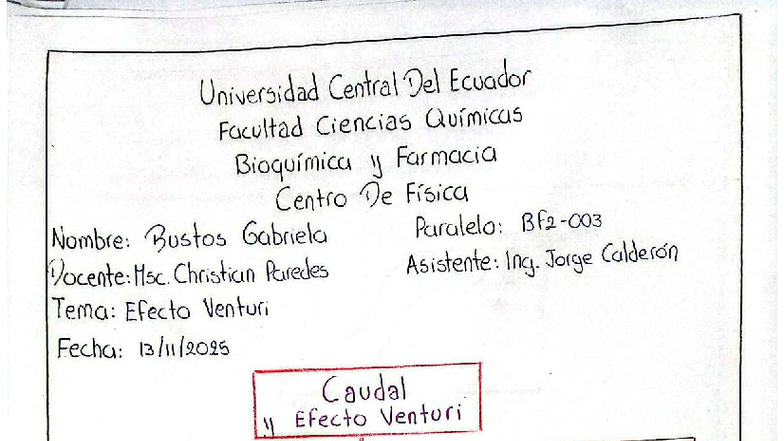 Universidad Central Del Ecuador
Facultad Ciencias Químicas
Bioquímica y Farmacia
Centro De Física
Nombre: Bustos Gabriela Paralelo: Bf2-003
Docente: Msc. Christian Paredes Asistente: Ing. Jorge Calderón
Tema: Efecto Venturi
Fecha: 13/11/2025
Caudal
y Efecto Venturi